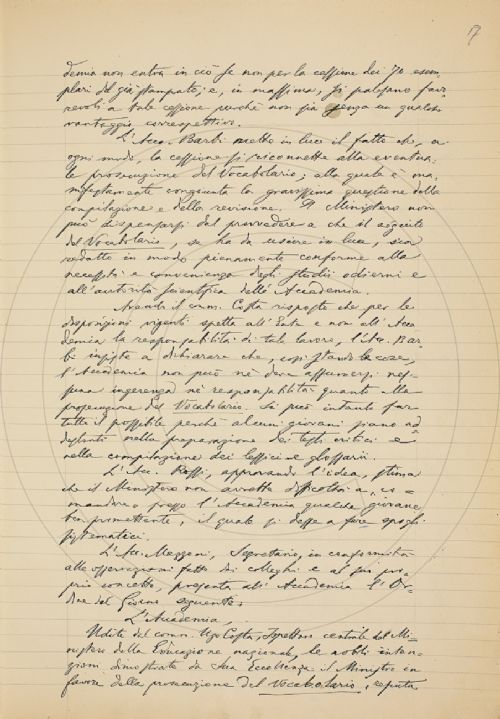 17
demia non entra in ciò se non per la cessione dei 70 esem-
plari del già stampato; e, in massima, si palesano favo-
revoli a tale cessione purchè non sia senza un qualche
vantaggio corrispettivo.
L'Acc. Barbi mette in luce il fatto che, a
ogni modo, la cessione si riconnette alla eventua-
le prosecuzione del Vocabolario; alla quale è ma-
nifestamente congiunta la gravissima questione della
compilazione e della revisione. Il Ministero non
può dispensarsi dal provvedere a che il seguito
del Vocabolario, se ha da uscire in luce, sia
redatto in modo pienamente conforme alla
necessità e convenienza degli studii odierni e
all'autorità scientifica dell'Accademia.
Avendo il comm. Costa risposto che per le
disposizioni vigenti spetta all'Ente e non all'Acca
demia la responsabilità di tale lavoro, l'Acc. Bar-
bi insiste a dichiarare che, così stando le cose,
l'Accademia non può nè deve assumersi nes-
suna ingerenza nè responsabilità quanto alla
prosecuzione del Vocabolario. Si può intanto far
tutto il possibile perchè alcuni giovani siano ad
destrati nella preparazione dei testi critici e
nella compilazione dei lessici e glossarii.
L'Acc. Rossi, approvando l'idea, stima
che il Ministero non avrebbe difficoltà a
mandare presso l'Accademia qualche giovane
ben promettente, il quale si desse a fare spogli
sistematici.
L'Acc. Mazzoni, Segretario, in conformità
alle osservazioni fatte dai Colleghi e al suo pro-
prio concetto, presenta all'Accademia l'Or-
dine del Giorno seguente:
L'Accademia
Udite dal comm. Ugo Costa, Ispettore centrale del Mi-
nistero della Educazione nazionale, le nobili inten-
zioni dimostrate da Sua Eccellenza il Ministro in
favore della prosecuzione del Vocabolario,